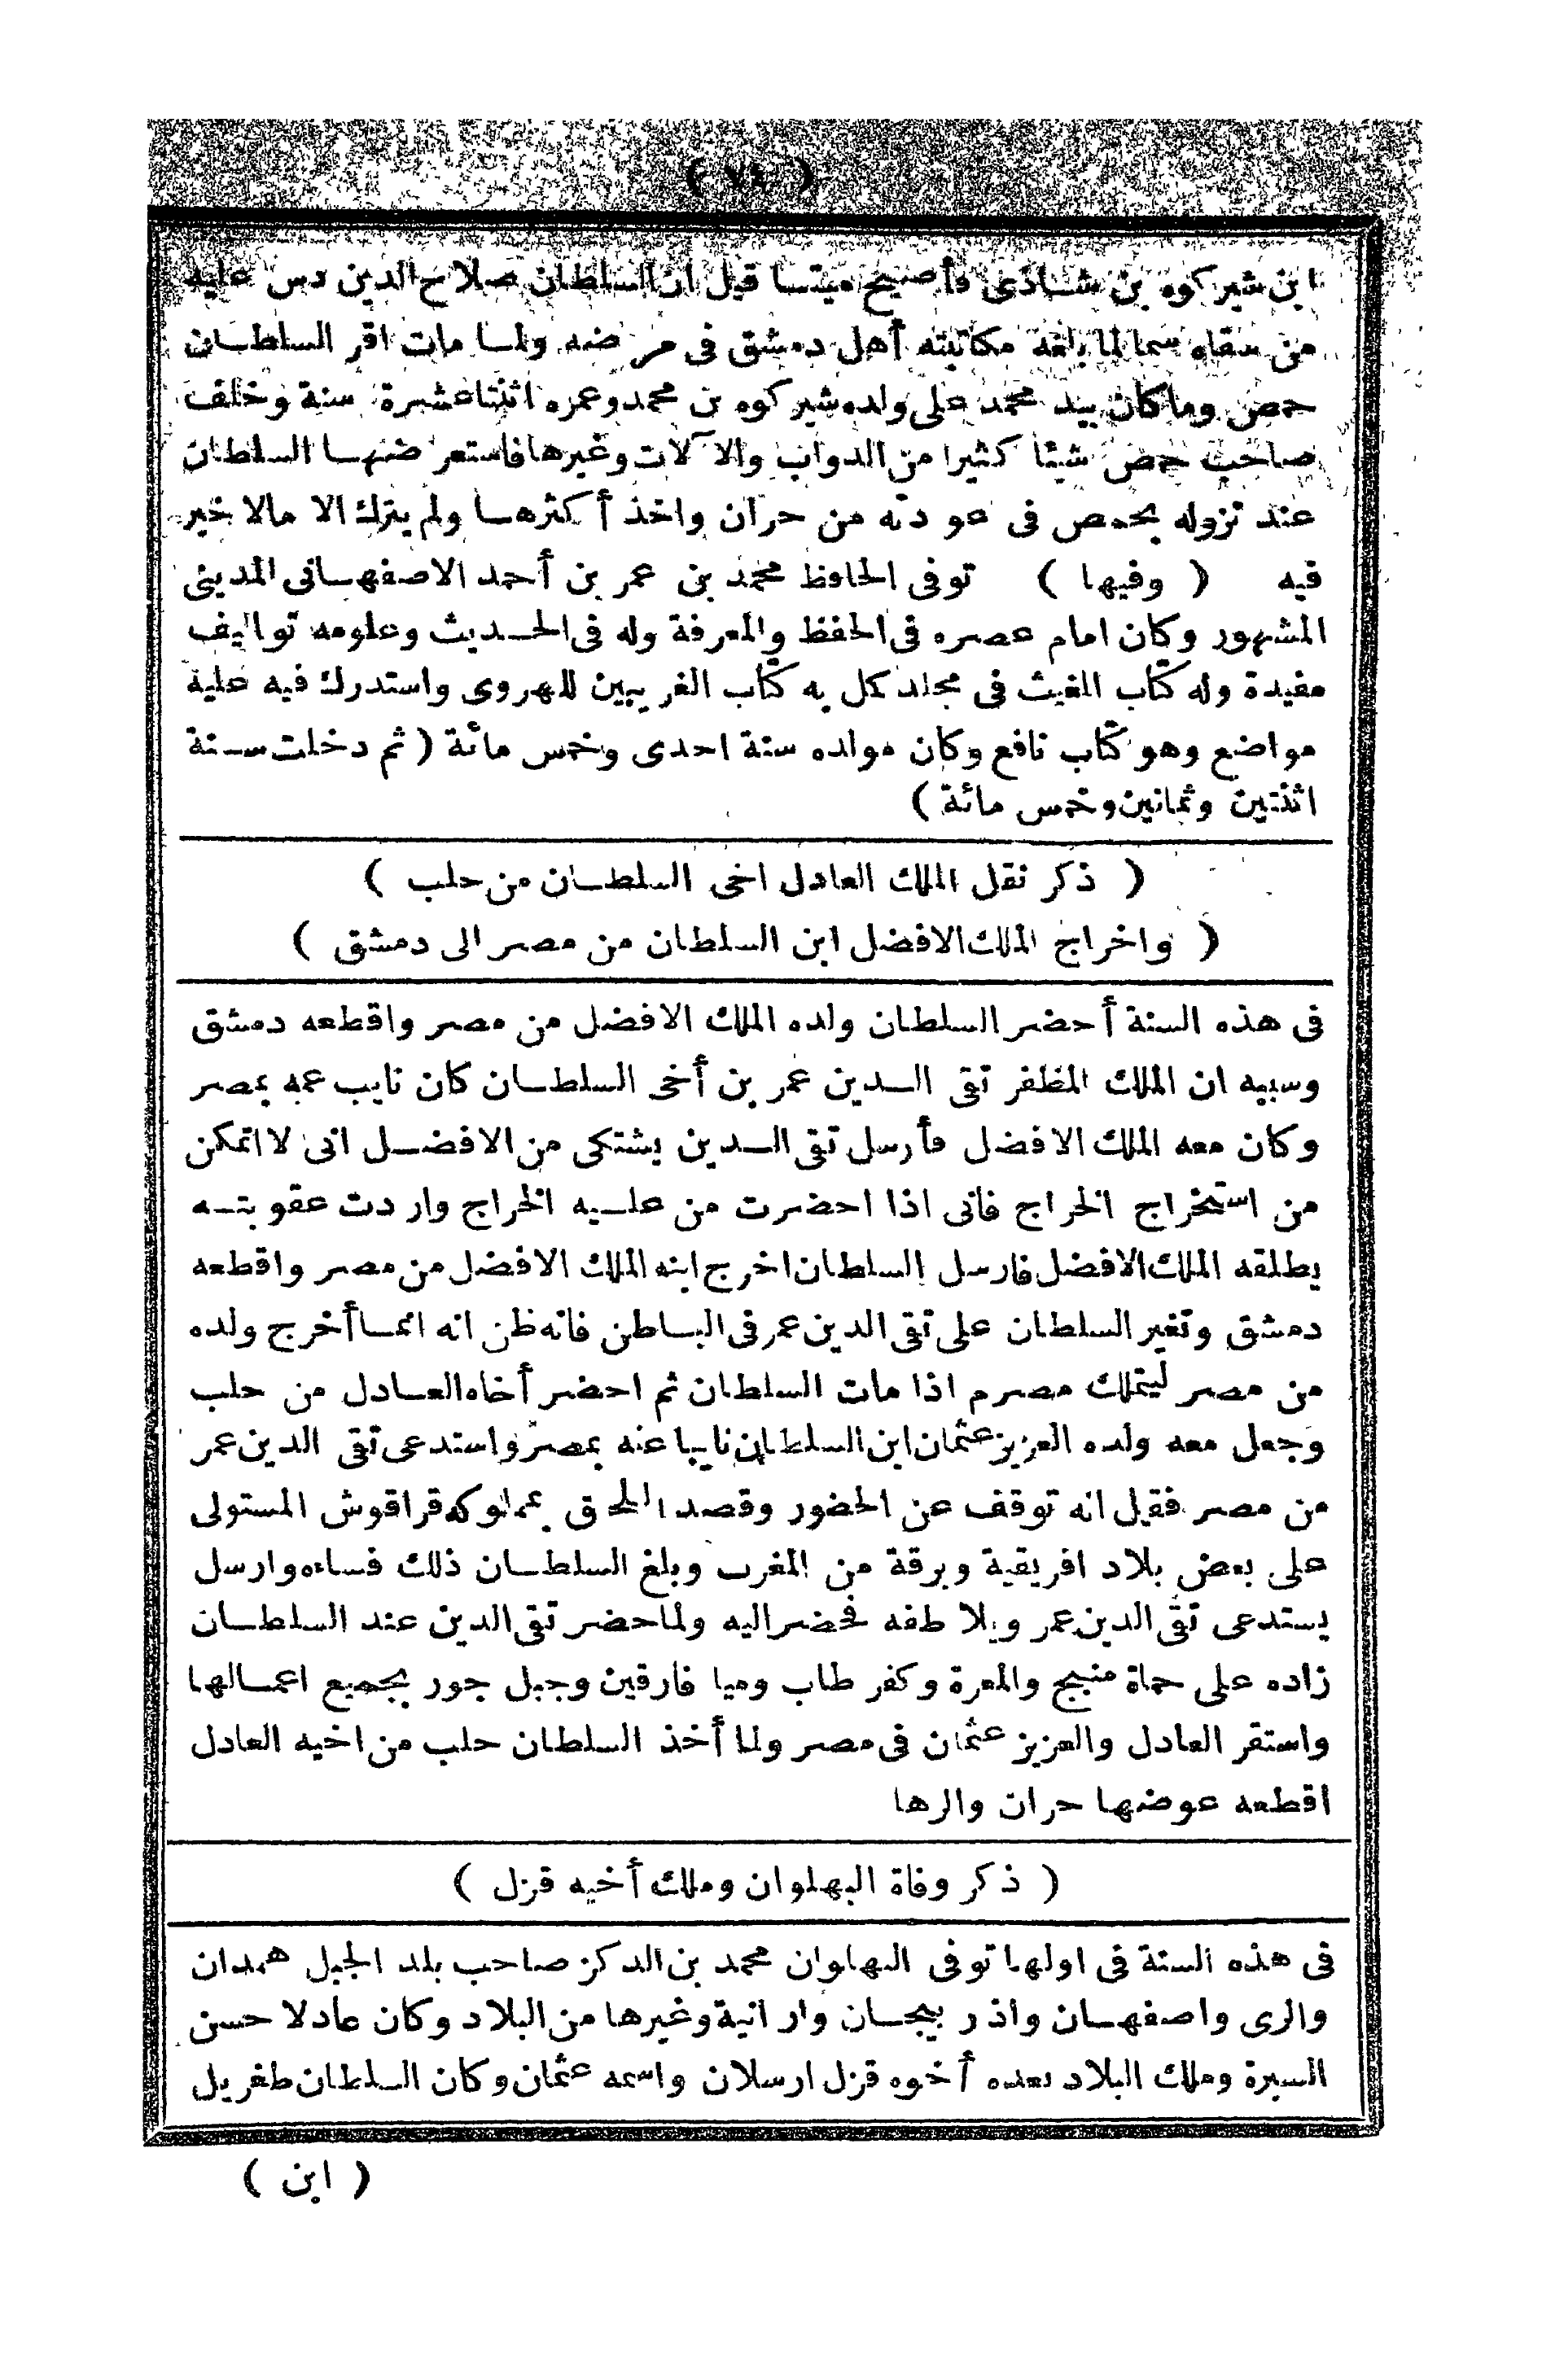 ( ٧٤ )
ابن شيركوه بن شاذى فأصبح ميتا قيل ان السلطان صلاح الدين دس عليه
من سقاه سما لما بلغه مكاتبته أهل دمشق فى مرضه ولما مات اقر السلطان
حمص وما كان بيد محمد على ولده شيركوه بن محمد وعمره اثنتا عشرة سنة وخلف
صاحب حمص شيئا كثيرا من الدواب والآلات وغيرها فاستعرضها السلطان
عند نزوله بحمص فى عودته من حران واخذ أكثرها ولم يترك الا مالا خير
فيه ( وفيها ) توفى الحافظ محمد بن عمر بن أحمد الاصفهانى المدينى
المشهور وكان امام عصره فى الحفظ والمعرفة وله فى الحديث وعلومه تواليف
مفيدة وله كتاب المغيث فى مجلد كمل به كتاب الغريبين للهروى واستدرك فيه عليه
مواضع وهو كتاب نافع وكان مولده سنة احدى وخمس مائة ( ثم دخلت سنة
اثنتين وثمانين وخمس مائة )
( ذكر نقل الملك العادل اخى السلطان من حلب )
( واخراج الملك الافضل ابن السلطان من مصر الى دمشق )
فى هذه السنة أحضر السلطان ولده الملك الافضل من مصر واقطعه دمشق
وسببه ان الملك المظفر تقى الدين عمر بن أخى السلطان كان نايب عمه بمصر
وكان معه الملك الافضل فأرسل تقى الدين يشتكى من الافضل انى لا اتمكن
من استخراج الخراج فانى اذا احضرت من عليه الخراج واردت عقوبته
يطلقه الملك الافضل فارسل السلطان اخرج ابنه الملك الافضل من مصر واقطعه
دمشق وتغير السلطان على تقى الدين عمر فى الباطن فانه ظن انه انما أخرج ولده
من مصر ليتملك مصرم اذا مات السلطان ثم احضر أخاه العادل من حلب
وجعل معه ولده العزيز عثمان ابن السلطان نايبا عنه بمصر واستدعى تقى الدين عمر
من مصر فقيل انه توقف عن الحضور وقصد اللحق بمملوكه قراقوش المستولى
على بعض بلاد افريقية وبرقة من المغرب وبلغ السلطان ذلك فساءه وارسل
يستدعى تقى الدين عمر ويلاطفه فحضر اليه ولما حضر تقى الدين عند السلطان
زاده على حماة منبج والمعرة وكفر طاب وميا فارقين وجبل جور بجميع اعمالها
واستقر العادل والعزيز عثمان فى مصر ولما أخذ السلطان حلب من اخيه العادل
اقطعه عوضها حران والرها
( ذكر وفاة البهلوان وملك أخيه قزل )
فى هذه السنة فى اولها توفى البهلوان محمد بن الدكز صاحب بلد الجبل همدان
والرى واصفهان واذربيجان وارانية وغيرها من البلاد وكان عادلا حسن
السيرة وملك البلاد بعده أخوه قزل ارسلان واسمه عثمان وكان السلطان طغريل
( ابن )